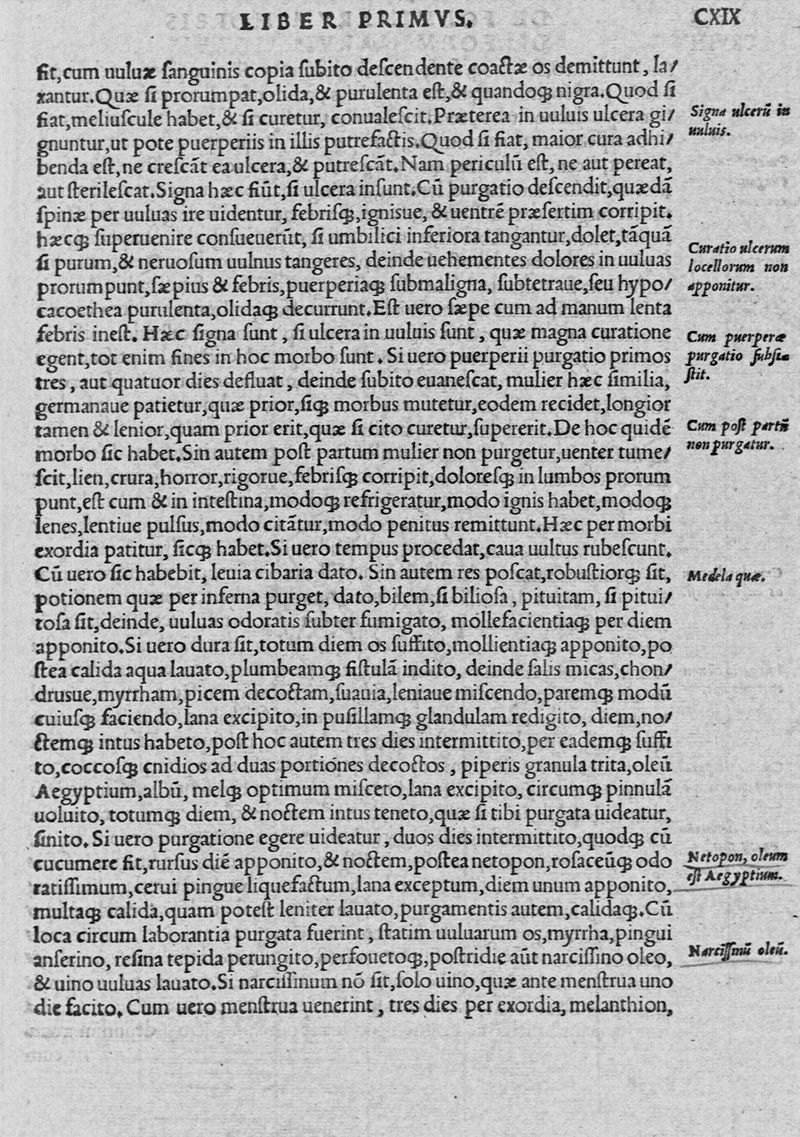 LIBER PRIMVS. CXIX
fit,cum uuluæ ſanguinis copia ſubito deſcendente coactæ os demittunt, la/
xantur.Quæ ſi prorumpat,olida,& purulenta eſt,& quandoq́ nigra.Quod ſi
fiat,meliuſcule habet,& ſi curetur, conualeſcit.Præterea in uuluis ulcera gi/
gnuntur,ut pote puerperiis in illis putrefactis.Quod ſi fiat, maior cura adhi/
benda eſt,ne creſcãt ea ulcera,& putreſcãt.Nam periculũ eſt, ne aut pereat,
aut ſterileſcat.Signa hæc fiũt,ſi ulcera inſunt.Cũ purgatio deſcendit,quædã
ſpinæ per uuluas ire uidentur, febriſq́,ignisue, & uentrẽ præſertim corripit.
hæcq́ ſuperuenire conſueuerũt, ſi umbilici inferiora tangantur,dolet,tãquã
ſi purum,& neruoſum uulnus tangeres, deinde uehementes dolores in uuluas
prorumpunt,ſæpius & febris,puerperiaq́ ſubmaligna, ſubtetraue,ſeu hypo/
cacoethea purulenta,olidaq́ decurrunt.Eſt uero ſæpe cum ad manum lenta
febris ineſt. Hæc ſigna ſunt, ſi ulcera in uuluis ſunt, quæ magna curatione
egent,tot enim fines in hoc morbo ſunt. Si uero puerperii purgatio primos
tres, aut quatuor dies defluat, deinde ſubito euaneſcat, mulier hæc ſimilia,
germanaue patietur,quæ prior,ſiq́ morbus mutetur,eodem recidet,longior
tamen & lenior,quam prior erit,quæ ſi cito curetur,ſupererit.De hoc quidẽ
morbo ſic habet.Sin autem poſt partum mulier non purgetur,uenter tume/
ſcit,lien,crura,horror,rigorue,febriſq́ corripit,doloreſq́ in lumbos prorum
punt,eſt cum & in inteſtina,modoq́ refrigeratur,modo ignis habet,modoq́
lenes,lentiue pulſus,modo citãtur,modo penitus remittunt.Hæc per morbi
exordia patitur, ſicq́ habet.Si uero tempus procedat,caua uultus rubeſcunt.
Cũ uero ſic habebit, leuia cibaria dato. Sin autem res poſcat,robuſtiorq́ ſit,
potionem quæ per inferna purget, dato,bilem,ſi bilioſa, pituitam, ſi pitui/
toſa ſit,deinde, uuluas odoratis ſubter fumigato, mollefacientiaq́ per diem
apponito.Si uero dura ſit,totum diem os ſuffito,mollientiaq́ apponito,po
ſtea calida aqua lauato,plumbeamq́ fiſtulã indito, deinde ſalis micas,chon/
drusue,myrrham,picem decoctam,ſuauia,leniaue miſcendo,paremq́ modũ
cuiuſq́ faciendo,lana excipito,in puſillamq́ glandulam redigito, diem,no/
ctemq́ intus habeto,poſt hoc autem tres dies intermittito,per eademq́ ſuffi
to,coccoſq́ cnidios ad duas portiones decoctos, piperis granula trita,oleũ
Aegyptium,albũ, melq́ optimum miſceto,lana excipito, circumq́ pinnulã
uoluito, totumq́ diem, & noctem intus teneto,quæ ſi tibi purgata uideatur,
ſinito. Si uero purgatione egere uideatur, duos dies intermittito,quodq́ cũ
cucumere fit,rurſus diẽ apponito,& noctem,poſtea netopon,roſaceũq́ odo
ratiſſimum,cerui pingue liquefactum,lana exceptum,diem unum apponito,
multaq́ calida,quam poteſt leniter lauato,purgamentis autem,calidaq́.Cũ
loca circum laborantia purgata fuerint, ſtatim uuluarum os,myrrha,pingui
anſerino, reſina tepida perungito,perfouetoq́,poſtridie aũt narciſſino oleo,
& uino uuluas lauato.Si narciſſinum nõ ſit,ſolo uino,quæ ante menſtrua uno
die facito. Cum uero menſtrua uenerint, tres dies per exordia, melanthion,
Signa ulcerũ in
uuluis.
Curatio ulcerum
locellorum non
apponitur.
Cum puerperæ
purgatio ſubſi=
ſtit.
Cum poſt partũ
non purgatur.
Medela quæ.
Netopon, oleum
eſt Aegyptium.
Narciſſinũ oleũ.